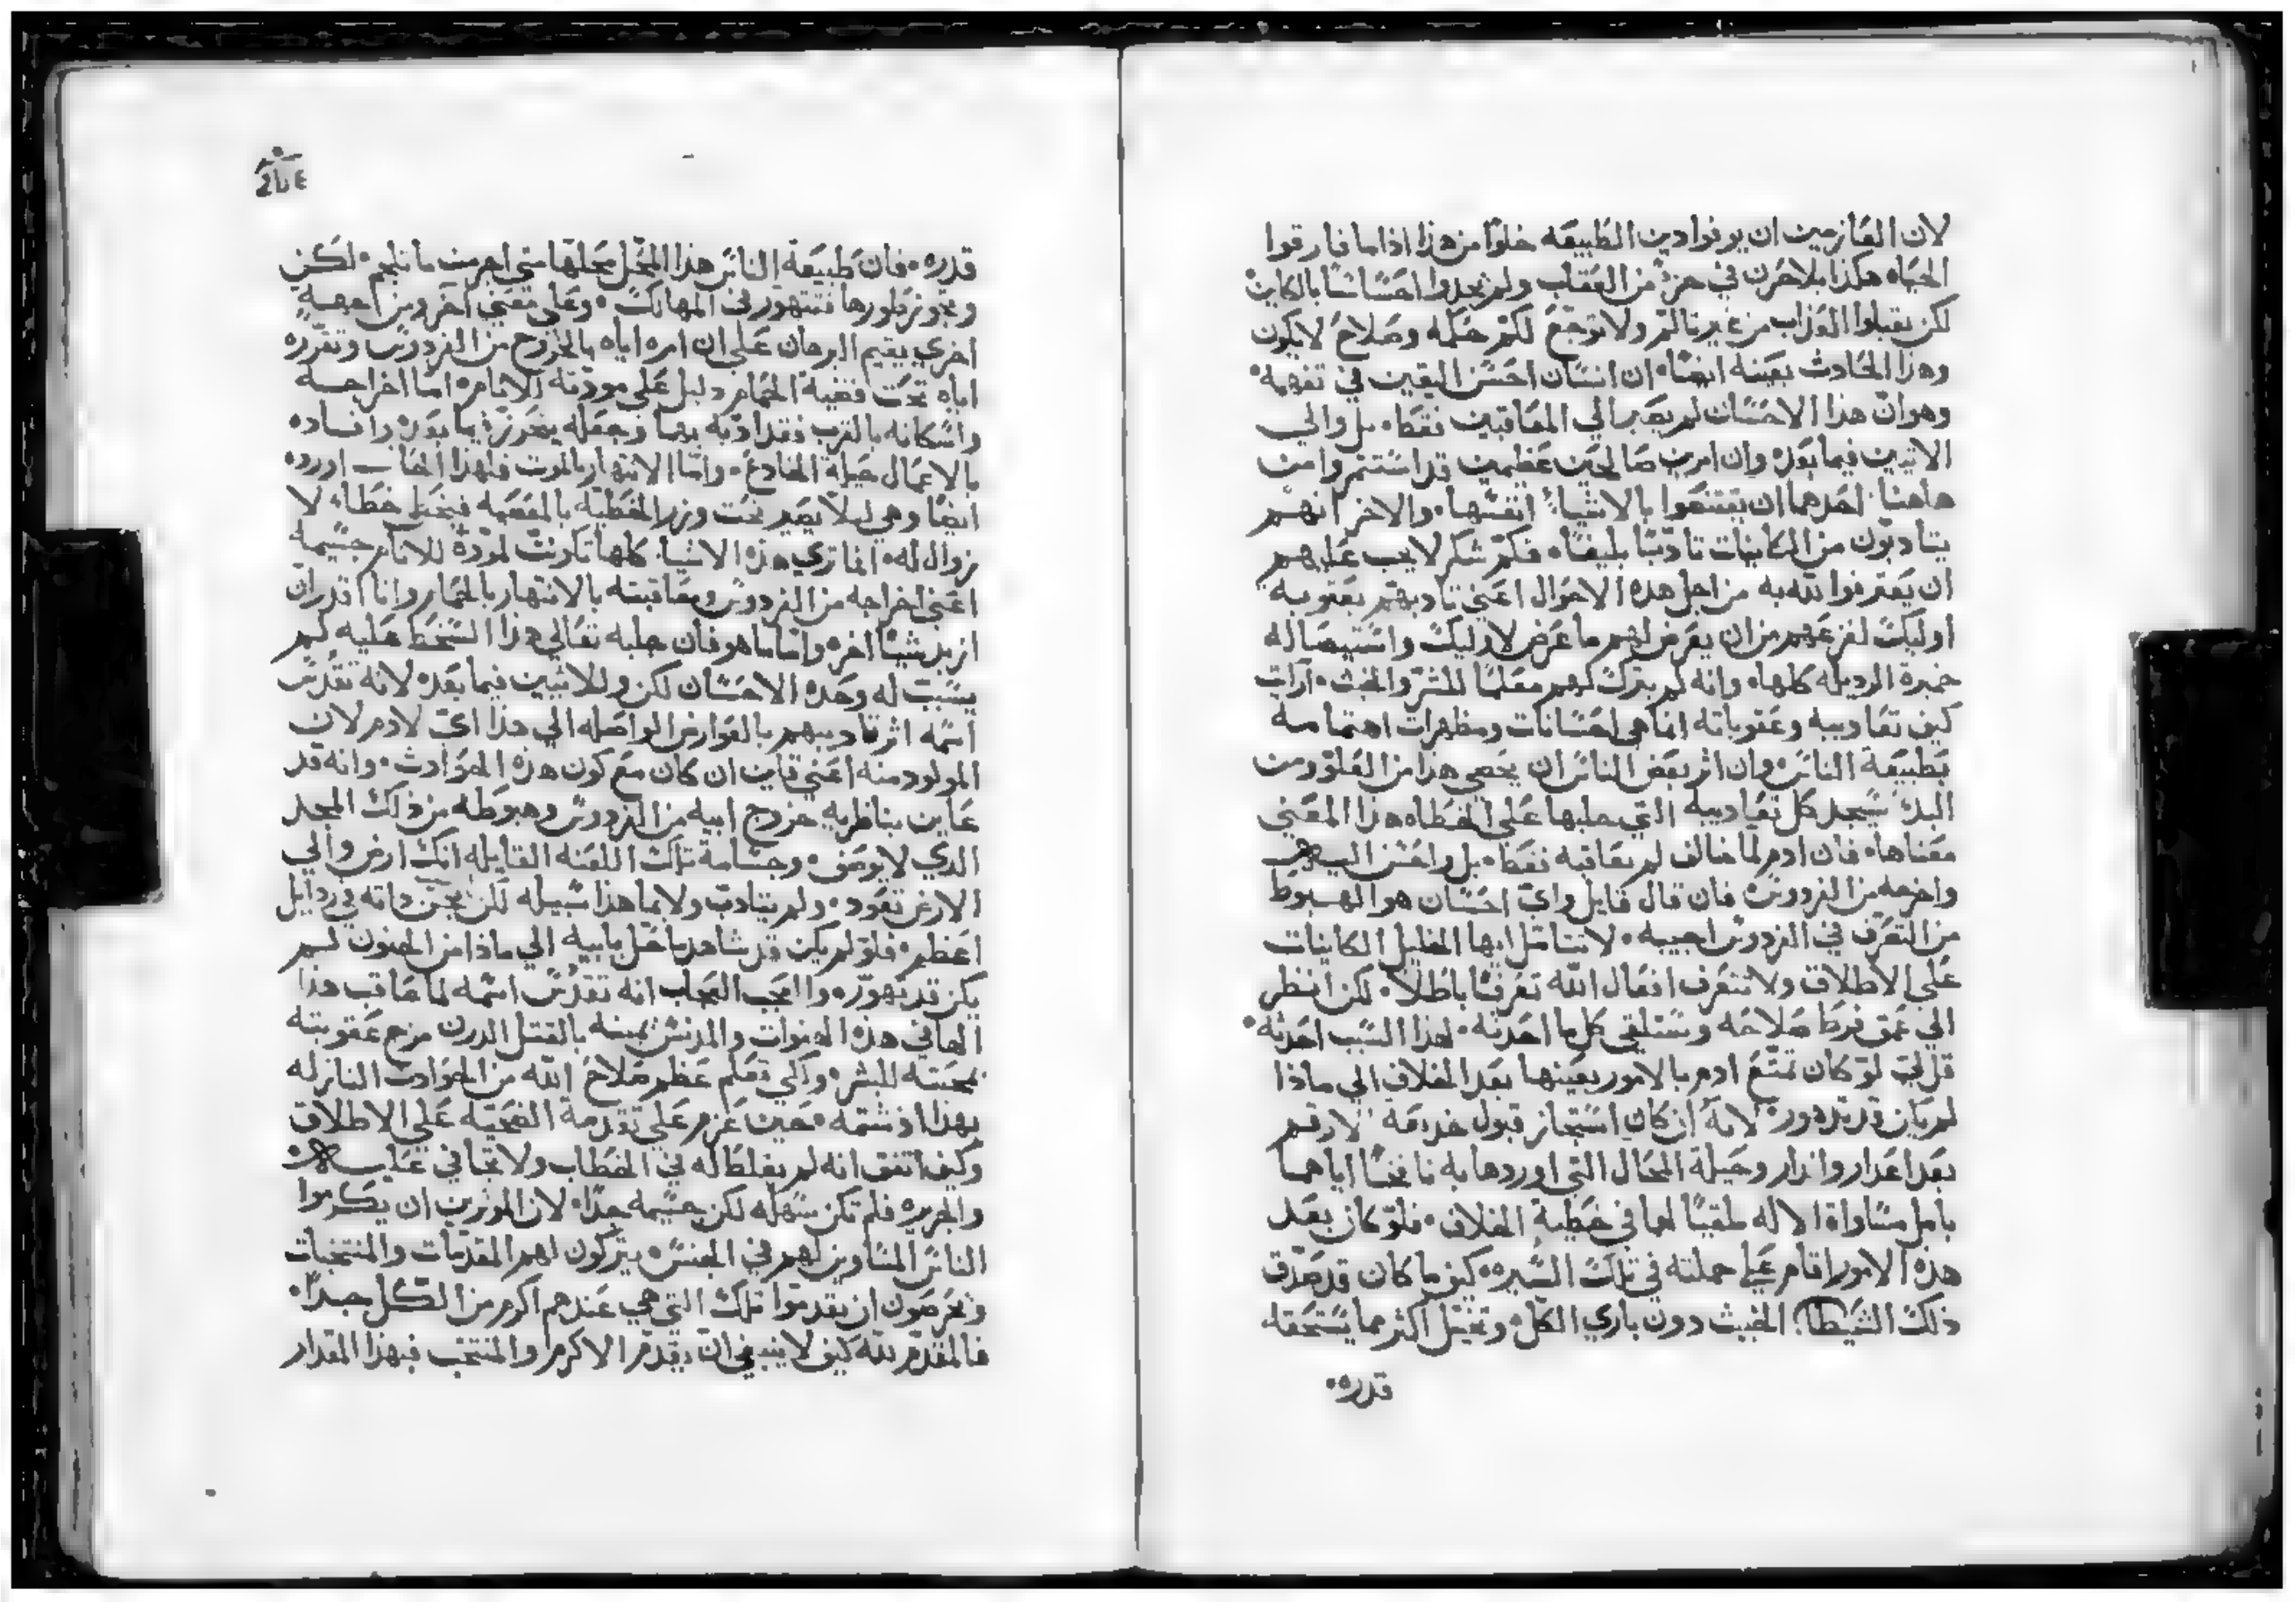 لان العازمين ان يونوا دين الطبيعه خلوًا من هذا اذا ما فارقوا
الحياه هكذا بلا حزن في من العقاب ولم يجدوا احسًاسًا بالكاين
لكن يقبلوا العذاب من غير تالم ولا توجّع لكم حكمه وصلاح لا يكون
وهذا الحادث بعينه ايضًا ان انسان احسن اليقين في تفهمه
وهو ان هذا الاحسان لم يصير الي المعاقبين فقط بل والي
الاتيين فيما بعده وان امرين صالحين عظيمين قد استتم وا من
هاهنا احدهما ان يقتنعوا بالاشياء انفسها والاخر انهم
يتادبون من الكاينات تادبًا بليغًا فكم شكر لا يجب عليهم
ان يعترفوا لله به من اجل هذه الاحوال اعني تاديبهم بعقوبة
اوليك لفزعهم من ان يعرض لهم ما عرض لاوليك واستيصاله
خميرة الرديله كلها وانه لم يترك لهم معلمًا للشر والخبث ارات
كيف تفاديبه وعقوباته انما هي احسانات ومظهرات اهتمامه
بطبيعة الناس وان اثر بعض الناس ان يحصي هذا من العلو ومن
البدّ سيجد كل تفاديبه التي جلبها علي الخطاه هذا المعني
معناها فان ادم لما خالف لم يعاقبه فقط بل واحسن اليه
واخرجه من الفردوس فان قال قايل واي احسان هو الهبوط
من التصرّف في الفردوس اجيبه لا تتامّل ايها الخليل الكاينات
علي الاطلاق ولا تتعرف افعال الله تعرفًا باطلا لكن انظر
الي عمق فرط صلاحه وستلقي كل ما احدثه لهذا السبب احدثه
قل لي لو كان تمتّع ادم بالامور بعينها بعد الخلاف الي ماذا
لم يكن قد تدهور لانه ان كان استجاز قبول خديعة الارقم
بعد اعذار وانذار وحيلة المحال التي اوردها به نافخًا اياهما
بامل مساواة الاله ملقيًا لهما في خطية الخلاف فلو كان بعد
هذه الامور اقام علي جملته في تلك السيره كيف ما كان قد صدّق
ذلك الشيطان الخبيث دون باري الكل وتخيّل اكثر مما يستحقه
قدره
قدره فان طبيعة الناس هذا المحل محلها متي اجرمت ما تلجم لكن
ويجوز تلورها فتتهور في المهالك وعلي معني اخر ومن جهة
اخري يقيم البرهان علي ان امره اياه بالخروج من الفردوس وتقرره
اياه تحت قضية الحمام دليل علي مودته للانام امّا اخراجه
واسكانه بالقرب فقد ادّبه بهما وجعله يتحرّز فيما بعده وافساده
بالاعمال حيلة الخادع وامّا الانتهار بالموت فلهذا السبب اورده
ايضًا وهي ليلا يصير تحت وزر الخطيه بالمعصيه فيخطي خطاء لا
زوال له انما تري هذه الاشياء كلها تكونت لمودة للانام جسيمه
اعني اخراجه من الفردوس ومعاقبته بالانتهار بالحمام وانا اقدر ان
ازيد شيًا اخر وامّا ما هو فان جلبه تعالي هذا السخط عليه لم
يسبّب له وحده الاحسان لكن وللاتيين فيما بعده لانه تقدس
اسمه اثر تاديبهم بالعوارض الواصله الي هذا اي لادم لان
المولود منه اعني قاين ان كان مع كون هذه الحوادث وانه قد
عاين بناظريه خروج ابيه من الفردوس وهبوطه من ذلك المجد
الذي لا يوصف وجسامة تلك اللعنه القايله انك ارض والي
الارض تعود ولم يتادب ولا بما هذا سبيله لكن سجن ذاته في ردايل
اعظم فلو لم يكن قد شاهد ما حلّ بابيه الي ماذا من الجنون لم
يكن قد تهوّر والعجب العجاب انه تقدّس اسمه لما عاقب هذا
الهافي هذه الهفوات والمدنس يمينه بالقتل الدرن مزج عقوبته
بمحبته للبشر ولكي تعلم عظم صلاح الله من الحوادث النازله
بهذا اذ شتمه حين عزم علي تقدمة الضحيّه علي الاطلاق
وكيف اتفق انه لم يغلظ له في الخطاب ولا تجافي عليه
والجريره فلم تكن سهله لكن جسيمه جدًا لان الموثرين ان يكرموا
الناس المساوين لهم في الجنس يتركون لهم المقدمات والمنتخبات
ويحرصون ان يقدموا تلك التي هي عندهم اكرم من الكل جدًا
فالمقدّم لله كيف لا ينبغي ان يقدّم الاكرم والمنتخب فبهذا المقدار